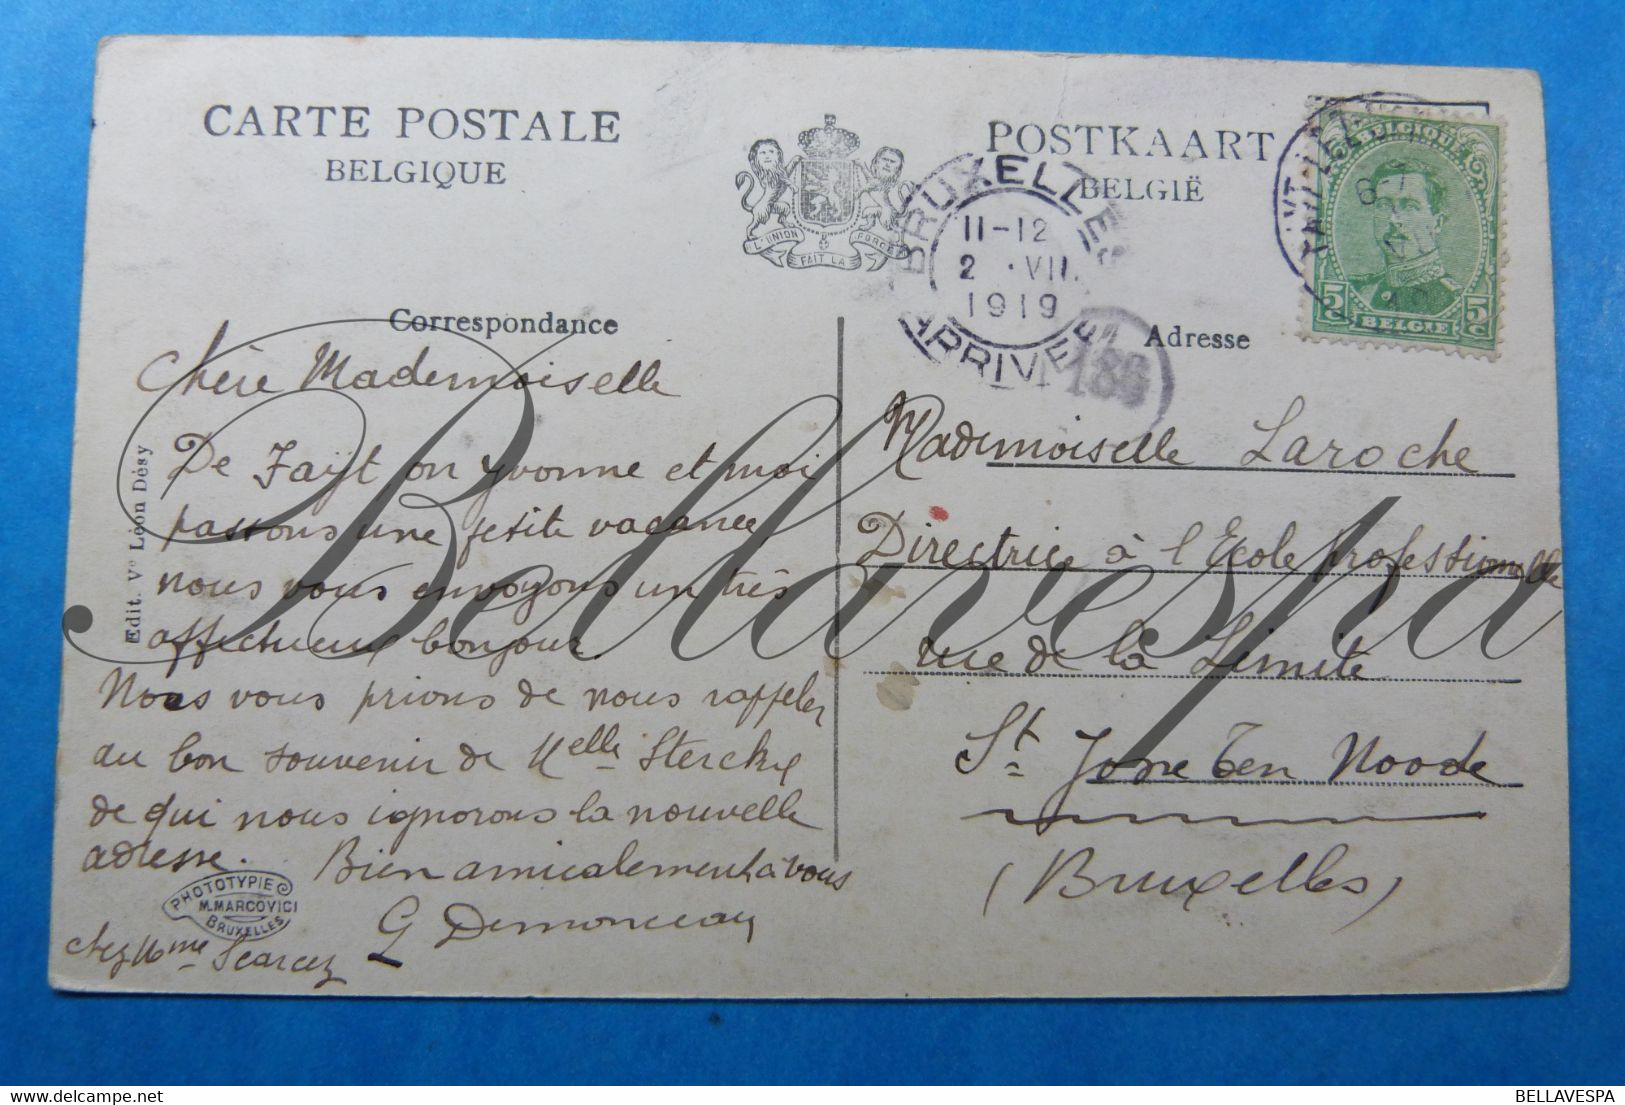 CARTE POSTALE
BELGIQUE
L'UNION FAIT LA FORCE
POSTKAART
BELGIË
BRUXELLES
11-12
2 ·VII.
1919
ARRIVEE
186
5c BELGIE 5c
Correspondance
Adresse
Chère Mademoiselle
De Faÿt on Yvonne et moi
passons une petite vacance
nous vous envoyons un très
affectueux bonjour.
Nous vous prions de nous rappeler
au bon souvenir de Melle Sterckx
de qui nous ignorons la nouvelle
adresse. Bien amicalement à vous
G Demonceau
chez Mme Scarcez
Mademoiselle Laroche
Directrice à l'Ecole professionnelle
rue de la Limite
St Josse Ten Noode
(Bruxelles)
Edit. Ve Léon Désy
PHOTOTYPIE
M.MARCOVICI
BRUXELLES
Bellavespa
BELLAVESPA